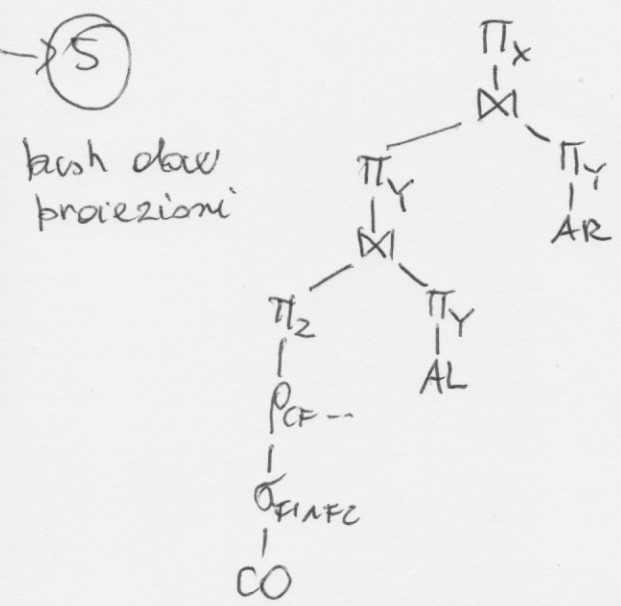 5
push dow
proiezioni
Π_X
⋈
Π_Y Π_Y
⋈ AR
Π_Z Π_Y
ρ_CF-- AL
σ_F1∧F2
CO